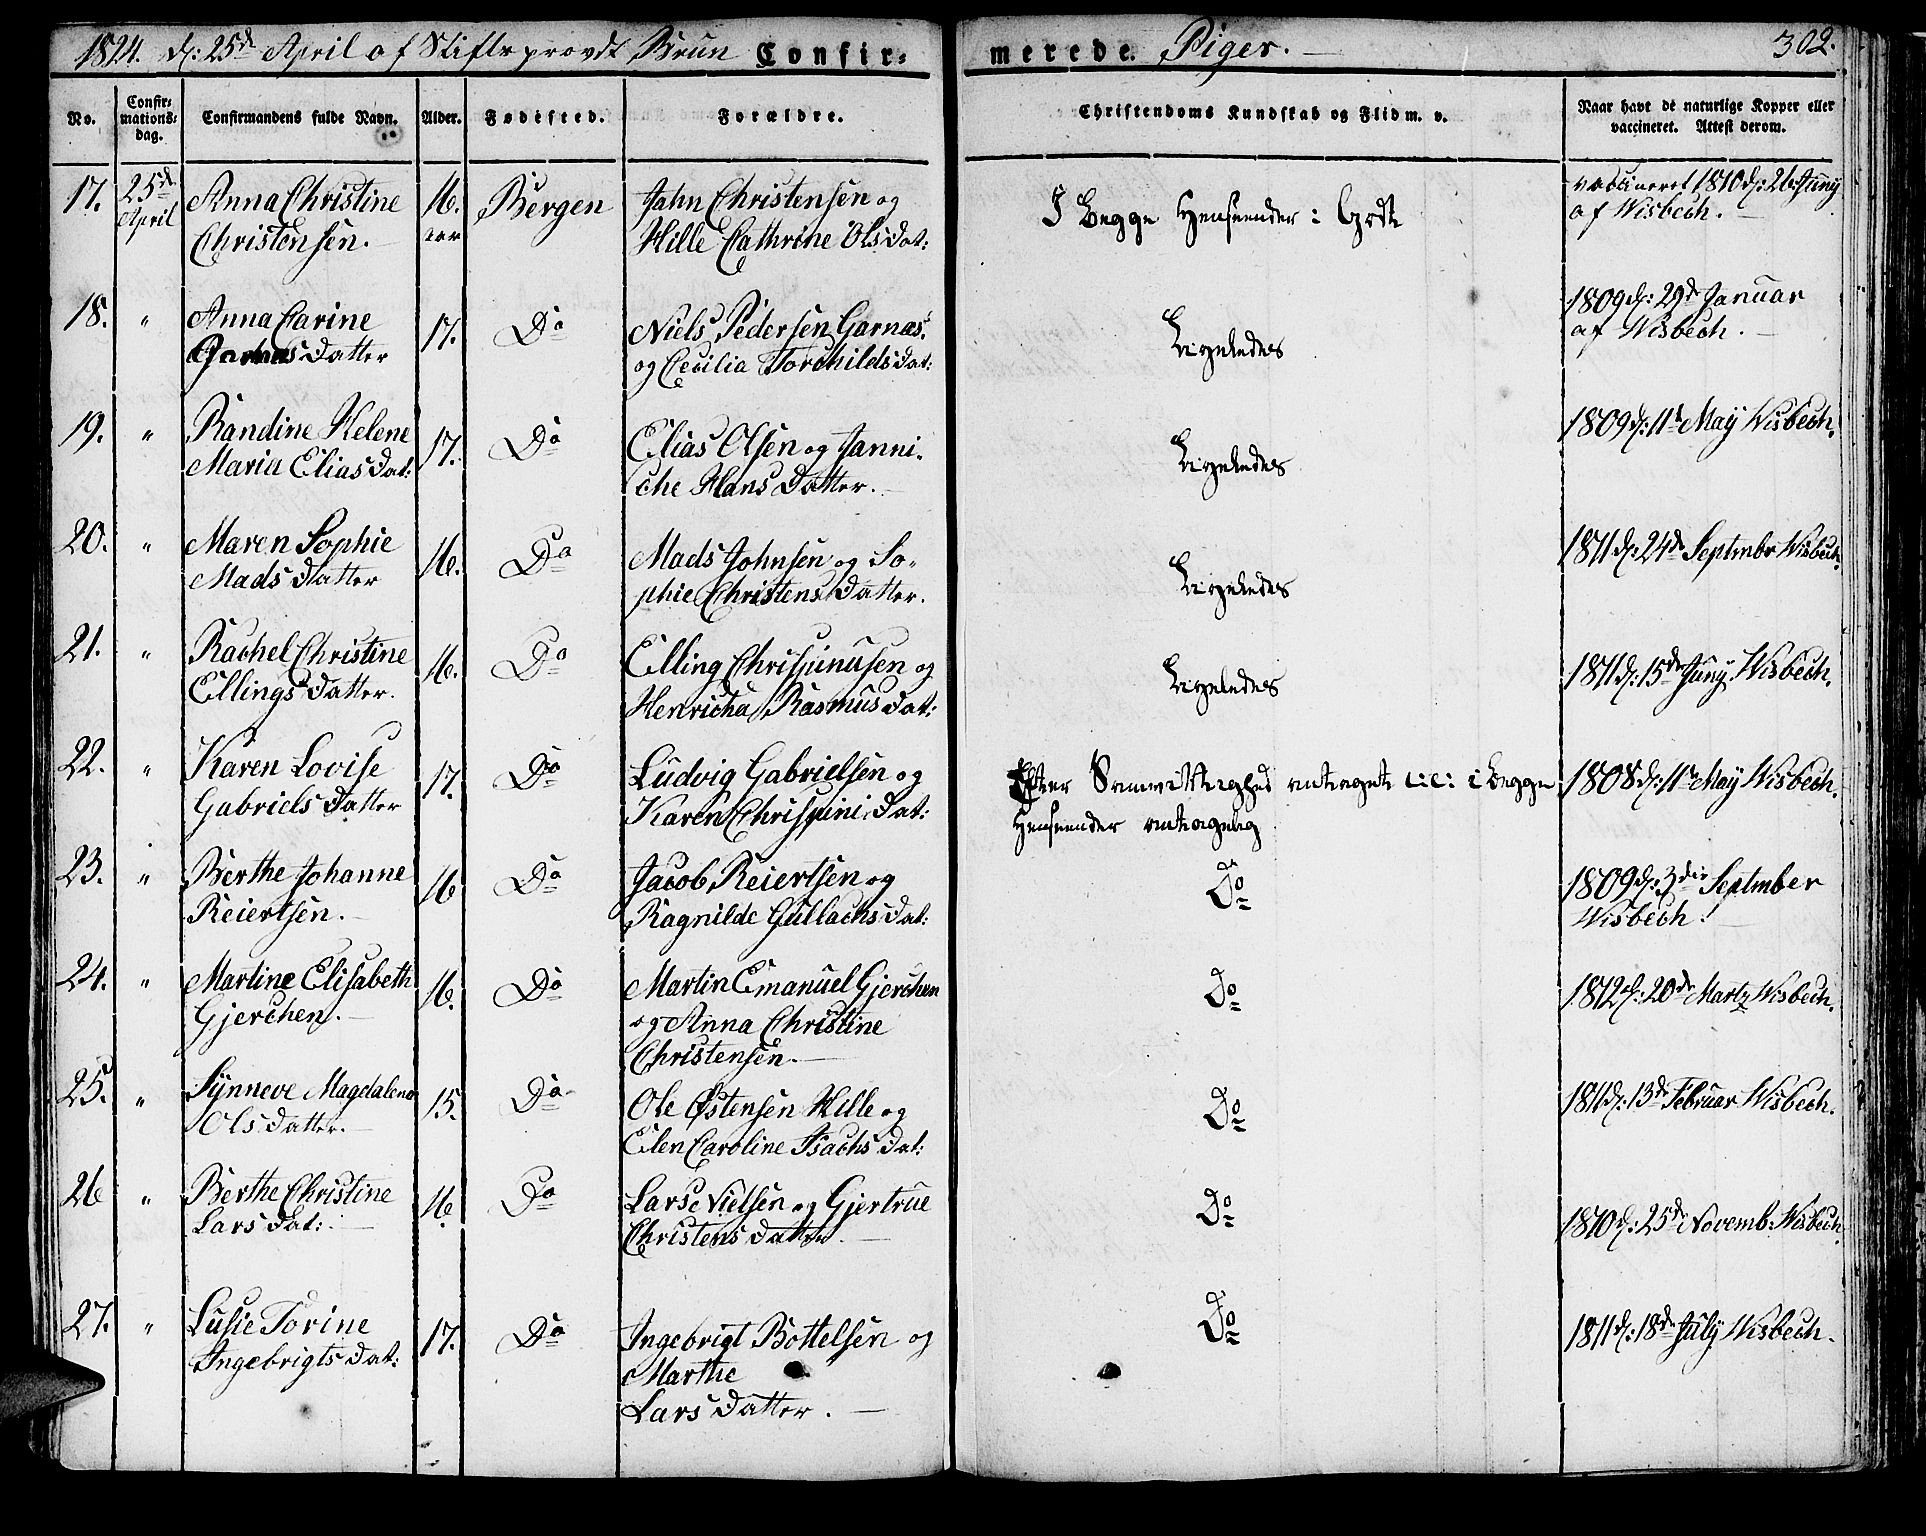 1824. d: 25de April af Stiftsprovst Brun Confirmerede Piger. 302.
No. | Confirmationsdag. | Confirmandens fulde Navn. | Alder. | Fødested. | Forældre. | Christendoms Kundskab og Flid m. v. | Naar havt de naturlige Kopper eller vaccineret. Attest derom.
17. 25de Anna Christine 16. Bergen Jahn Christensen og I begge Henseender: Godt vaccineret 1810 d: 26 Juny
April Christensen. aar Hille Cathrine Olsdat: af Wisbech.
18. " Anna Carine 17. Do Niels Pedersen Garnas. Ligeledes 1809 d: 29de Januar
Datter og Cecilia Torchildsdat: af Wisbech.
19. " Randine Helene 17. Do Elias Olsen og Janni- Ligeledes 1809 d: 11te May Wisbech.
Maria Eliasdat: che Hans Datter.
20. " Maren Sophie 16. Do Mads Johnsen og So- Ligeledes 1811 d: 24de Septmbr Wisbech.
Mads Datter phie Christens Datter.
21. " Rachel Christine 16. Do Elling Chrispinusen og Ligeledes 1811 d: 15de Juny Wisbech.
Ellings Datter. Henricha Rasmusdat:
22. " Karen Lovise 17. Do Ludvig Gabrielsen og Efter Samvittighed antaget i begge 1808 d: 11te May Wisbech.
Gabriels Datter Karen Chrispini Dat: Henseender antagelig
23. " Berthe Johanne 16 Do Jacob Reiertsen og Do 1809 d: 3die Septmber
Reiertsen. Ragnilde Gullachsdat: Wisbech.
24. " Martine Elisabeth 16. Do Martin Emanuel Gjerchen Do 1812 d: 20de Martz Wisbech.
Gjerchen. og Anna Christine
Christensen.
25. " Synneve Magdalena 15. Do Ole Østensen Hille og Do 1811 d: 13de Februar Wisbech.
Ols Datter. Elen Caroline Isachs Dat:
26 " Berthe Christine 16. Do Lars Nielsen og Gjertrue Do 1810 d: 25de Novemb: Wisbech.
Lars Dat: Christens Datter.
27. " Lusie Torine 17. Do Ingebrigt Bottelsen og Do 1811 d: 18de July Wisbech.
Ingebrigts Dat: Marthe
Lars Datter.